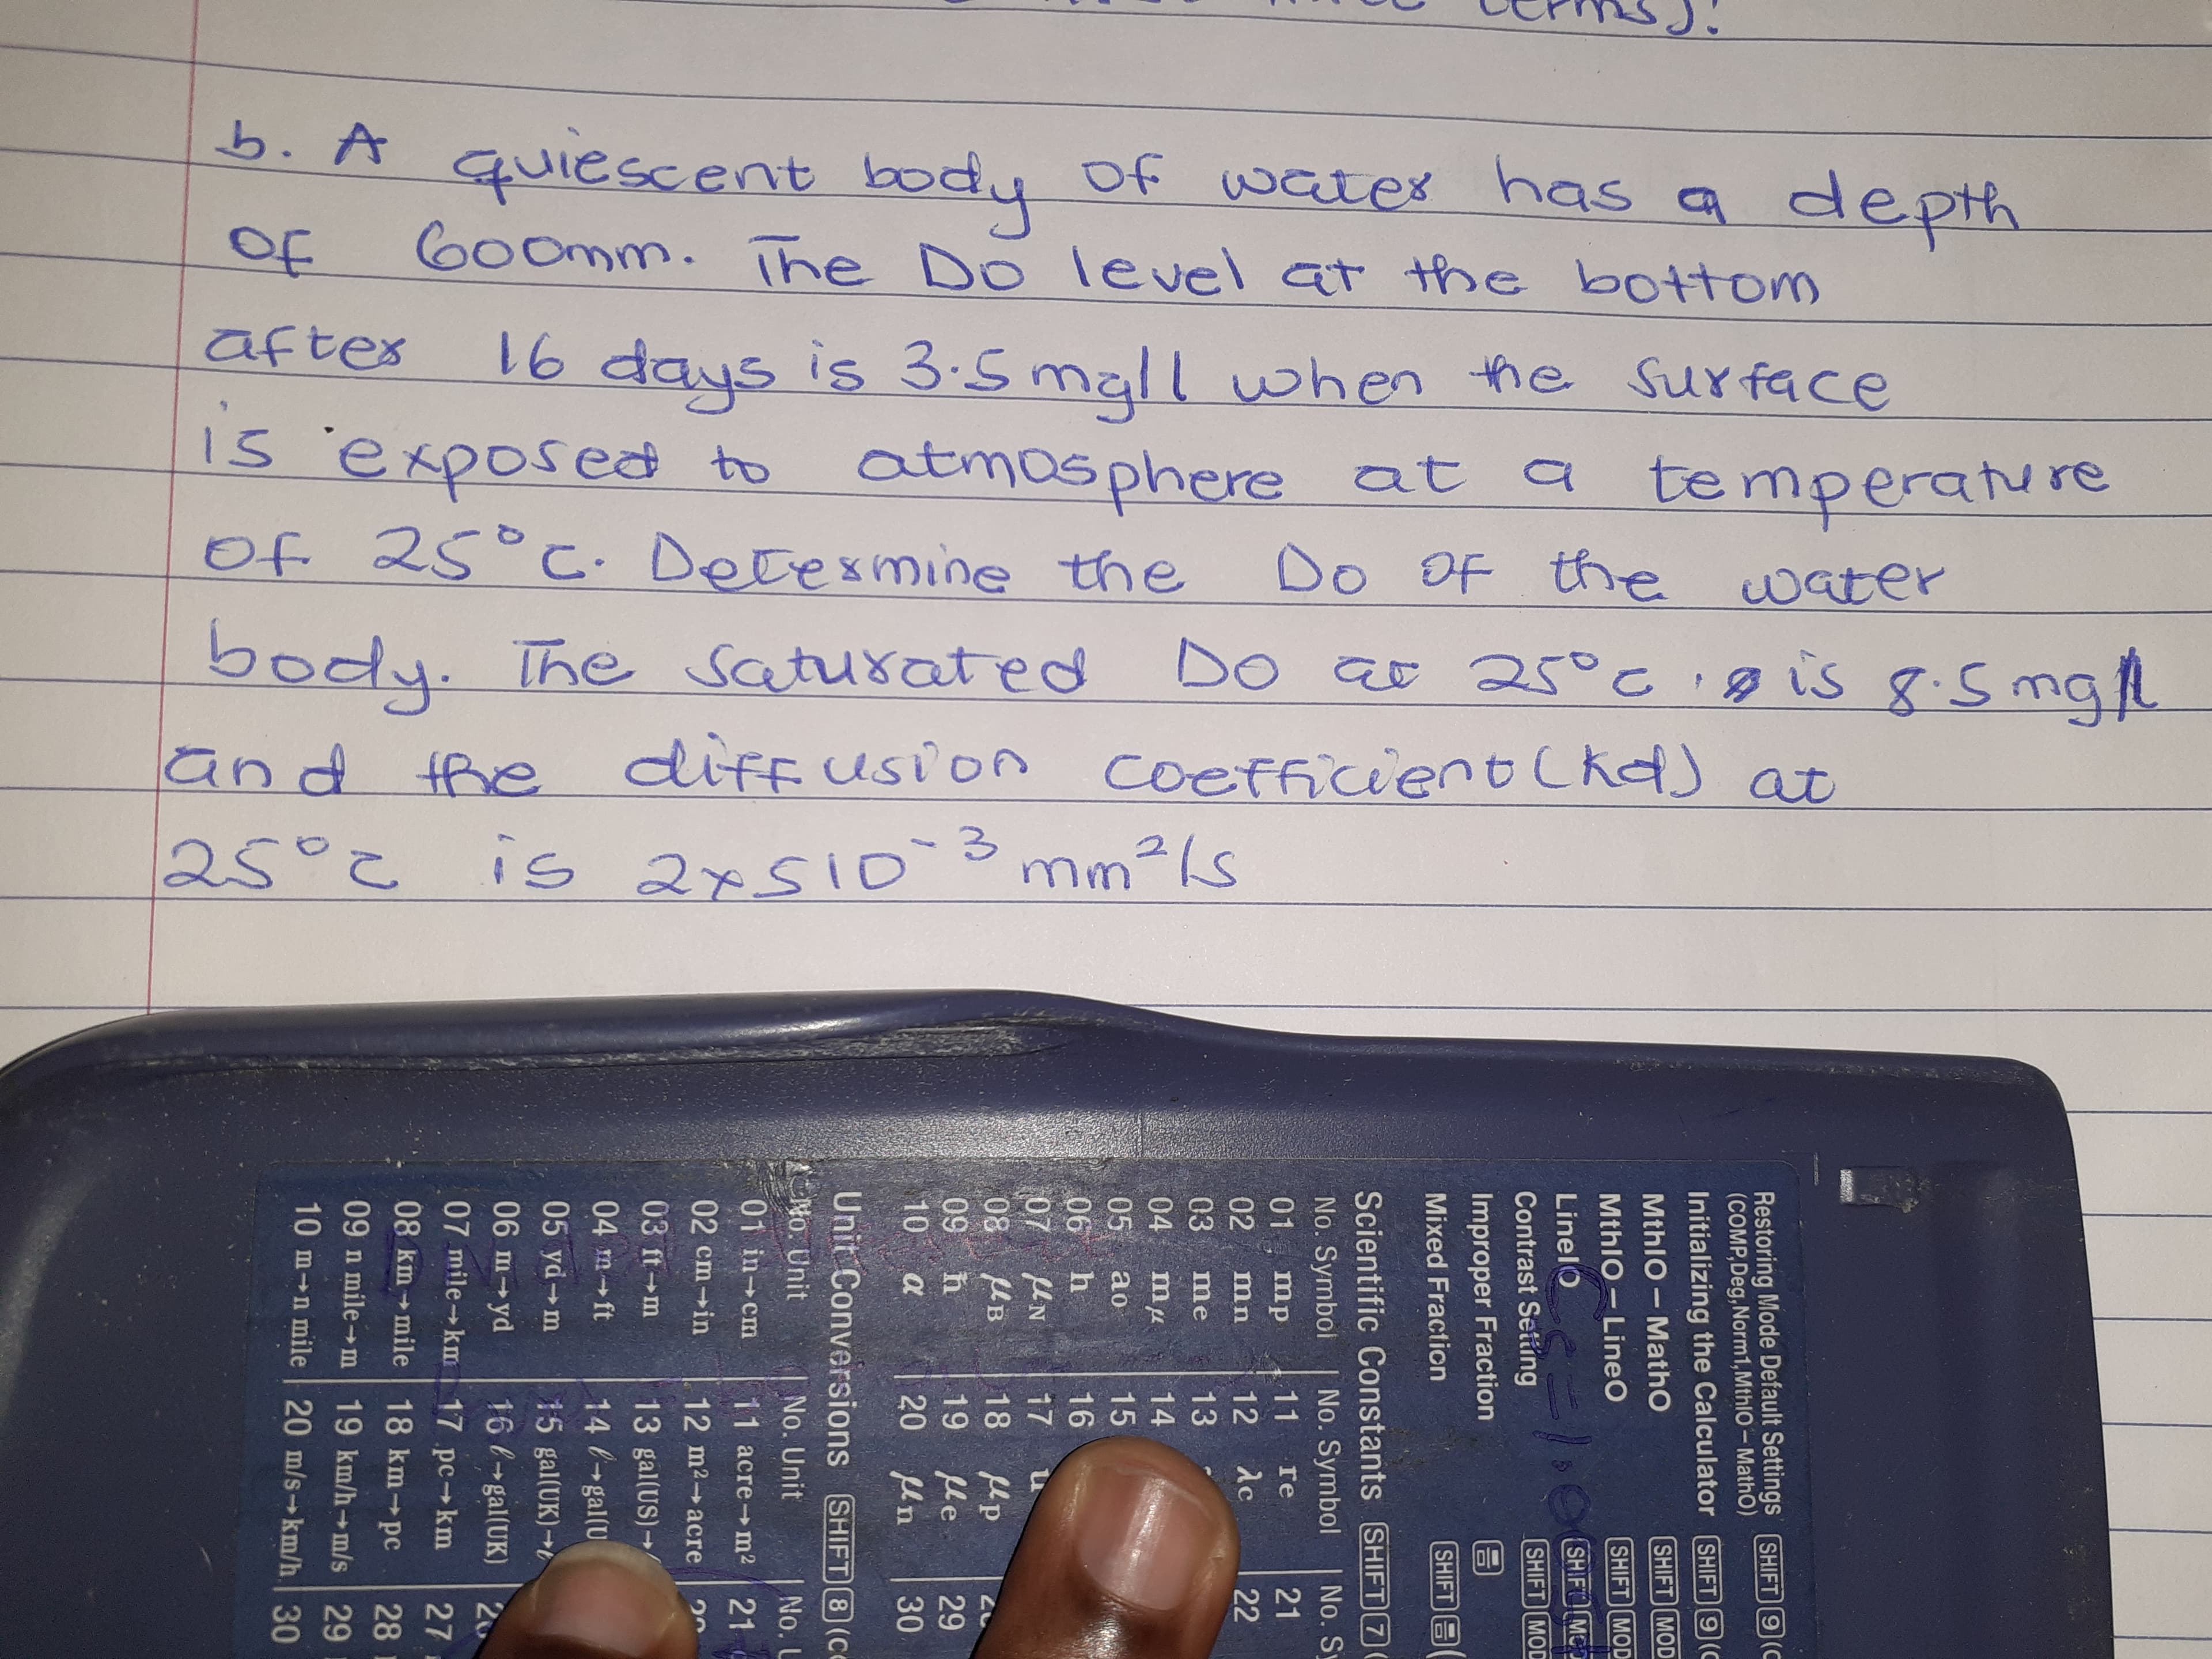 terms).
b. A quiescent body of water has a depth
of 600mm. The DO level at the bottom
after 16 days is 3.5 mg/l when the surface
is exposed to atmosphere at a temperature
of 25°C. Determine the Do of the water
body. The saturated DO at 25°C. is 8.5 mg/l
and the diffusion coefficient (Kd) at
25°C is 2x510⁻³ mm²/s
Restoring Mode Default Settings SHIFT 9
(COMP,Deg,Norm1,MthIO–MathO)
Initializing the Calculator SHIFT 9
MthIO – MathO SHIFT MOD
MthIO – LineO SHIFT MOD
LineIO SHIFT
Contrast Setting SHIFT MOD
Improper Fraction
Mixed Fraction SHIFT
Cs = 1.
Scientific Constants SHIFT 7
No. Symbol No. Symbol No.
01 mp 11 re 21
02 mn 12 λc 22
03 me 13
04 mμ 14
05 ao 15
06 h 16
07 μN 17
08 μB 18 μp
09 ħ 19 μe 29
10 α 20 μn 30
Unit Conversions SHIFT 8
No. Unit No. Unit No.
01 in→cm 11 acre→m² 21
02 cm→in 12 m²→acre
03 ft→m 13 gal(US)→
04 m→ft 14 ℓ→gal(U
05 yd→m 15 gal(UK)→
06 m→yd 16 ℓ→gal(UK)
07 mile→km 17 pc→km 27
08 km→mile 18 km→pc 28
09 n mile→m 19 km/h→m/s 29
10 m→n mile 20 m/s→km/h 30